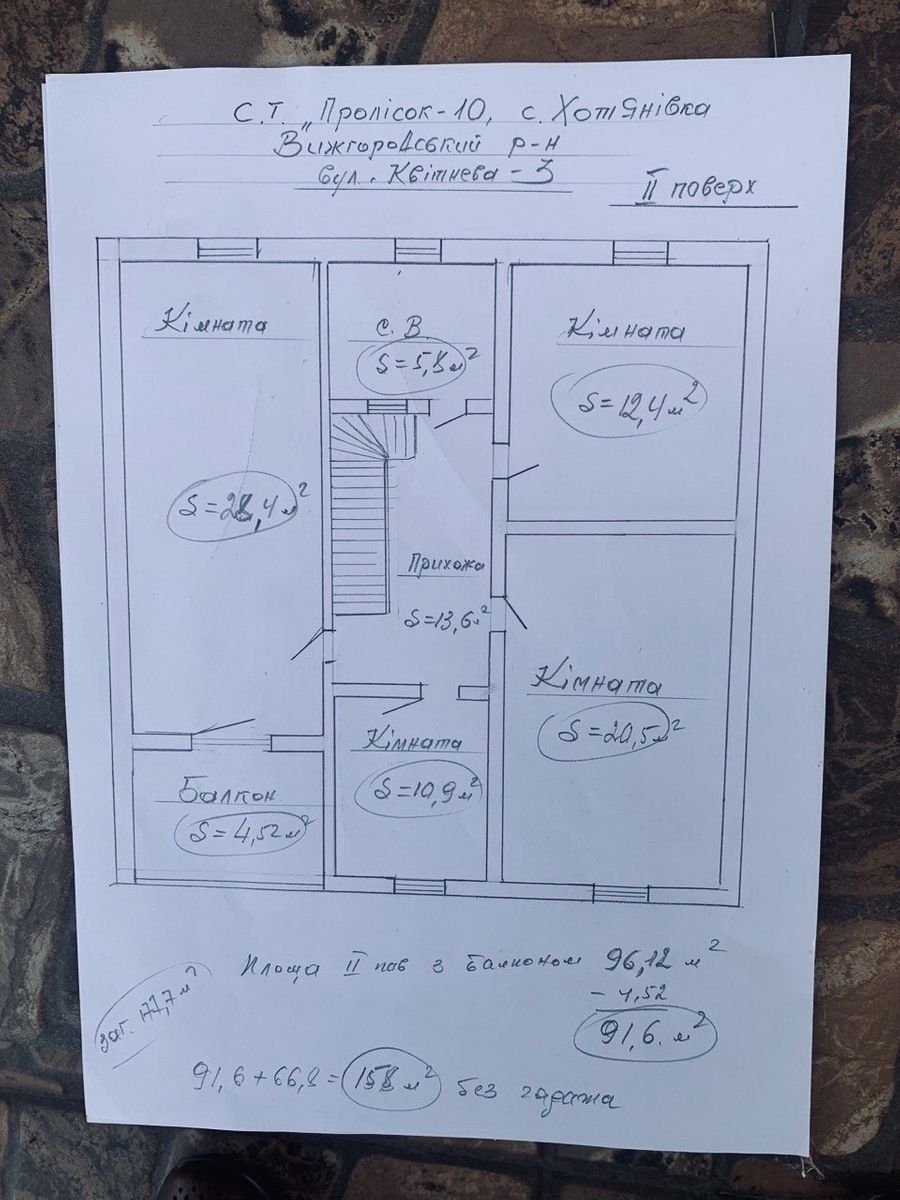 С.Т. „Пролісок-10, с. Хотянівка
Вижгородський р-н
вул. Квітнева - 3
II поверх
Кімната
S=28,4 м²
С. В.
S=5,8 м²
Кімната
S=12,4 м²
Прихожа
S=13,6 м²
Кімната
S=20,5 м²
Кімната
S=10,9 м²
Балкон
S=4,52 м²
Площа II пов з балконом 96,12 м²
- 4,52
91,6 м²
заг. 177,7 м²
91,6+66,8=158 м² без гаража